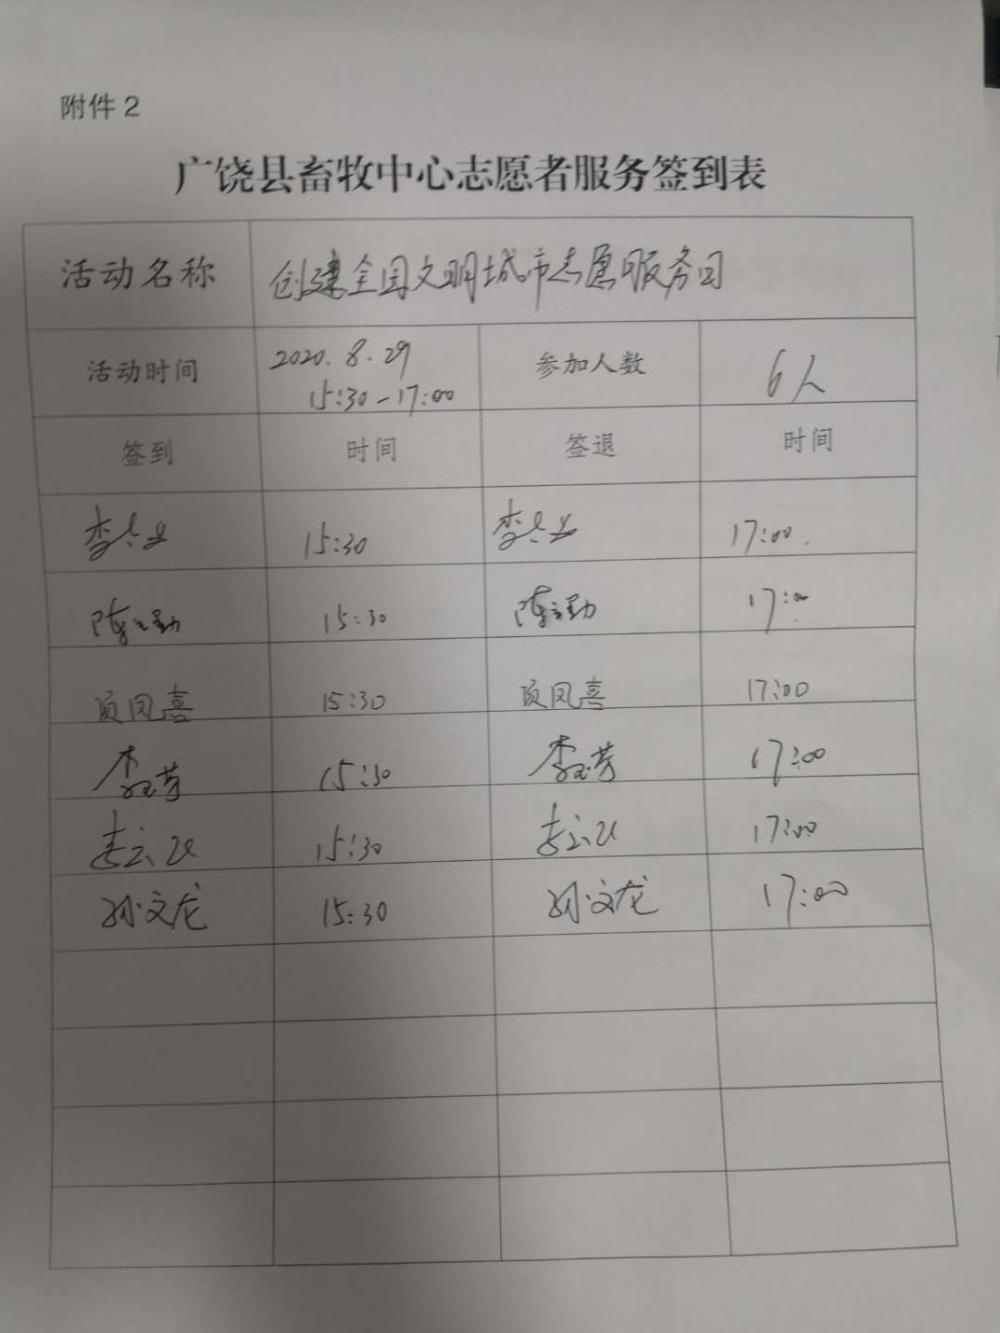 附件2
广饶县畜牧中心志愿者服务签到表
活动名称 创建全国文明城市志愿服务日
活动时间 2020.8.29 15:30-17:00 参加人数 6人
签到 时间 签退 时间
李 15:30 李 17:00
陈 勤 15:30 陈 勤 17:00
项凤喜 15:30 项凤喜 17:00
李玉芳 15:30 李玉芳 17:00
李云 15:30 李云 17:00
孙文龙 15:30 孙文龙 17:00